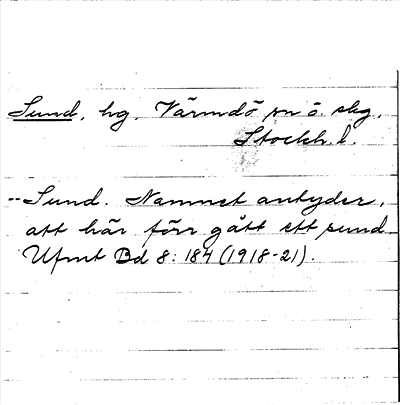 Sund, hg, Värmdö sn ö. skg,
Stockh. l.
-- Sund. Namnet antyder,
att här förr gått ett sund
Ufmt Bd 8: 184 (1918-21).